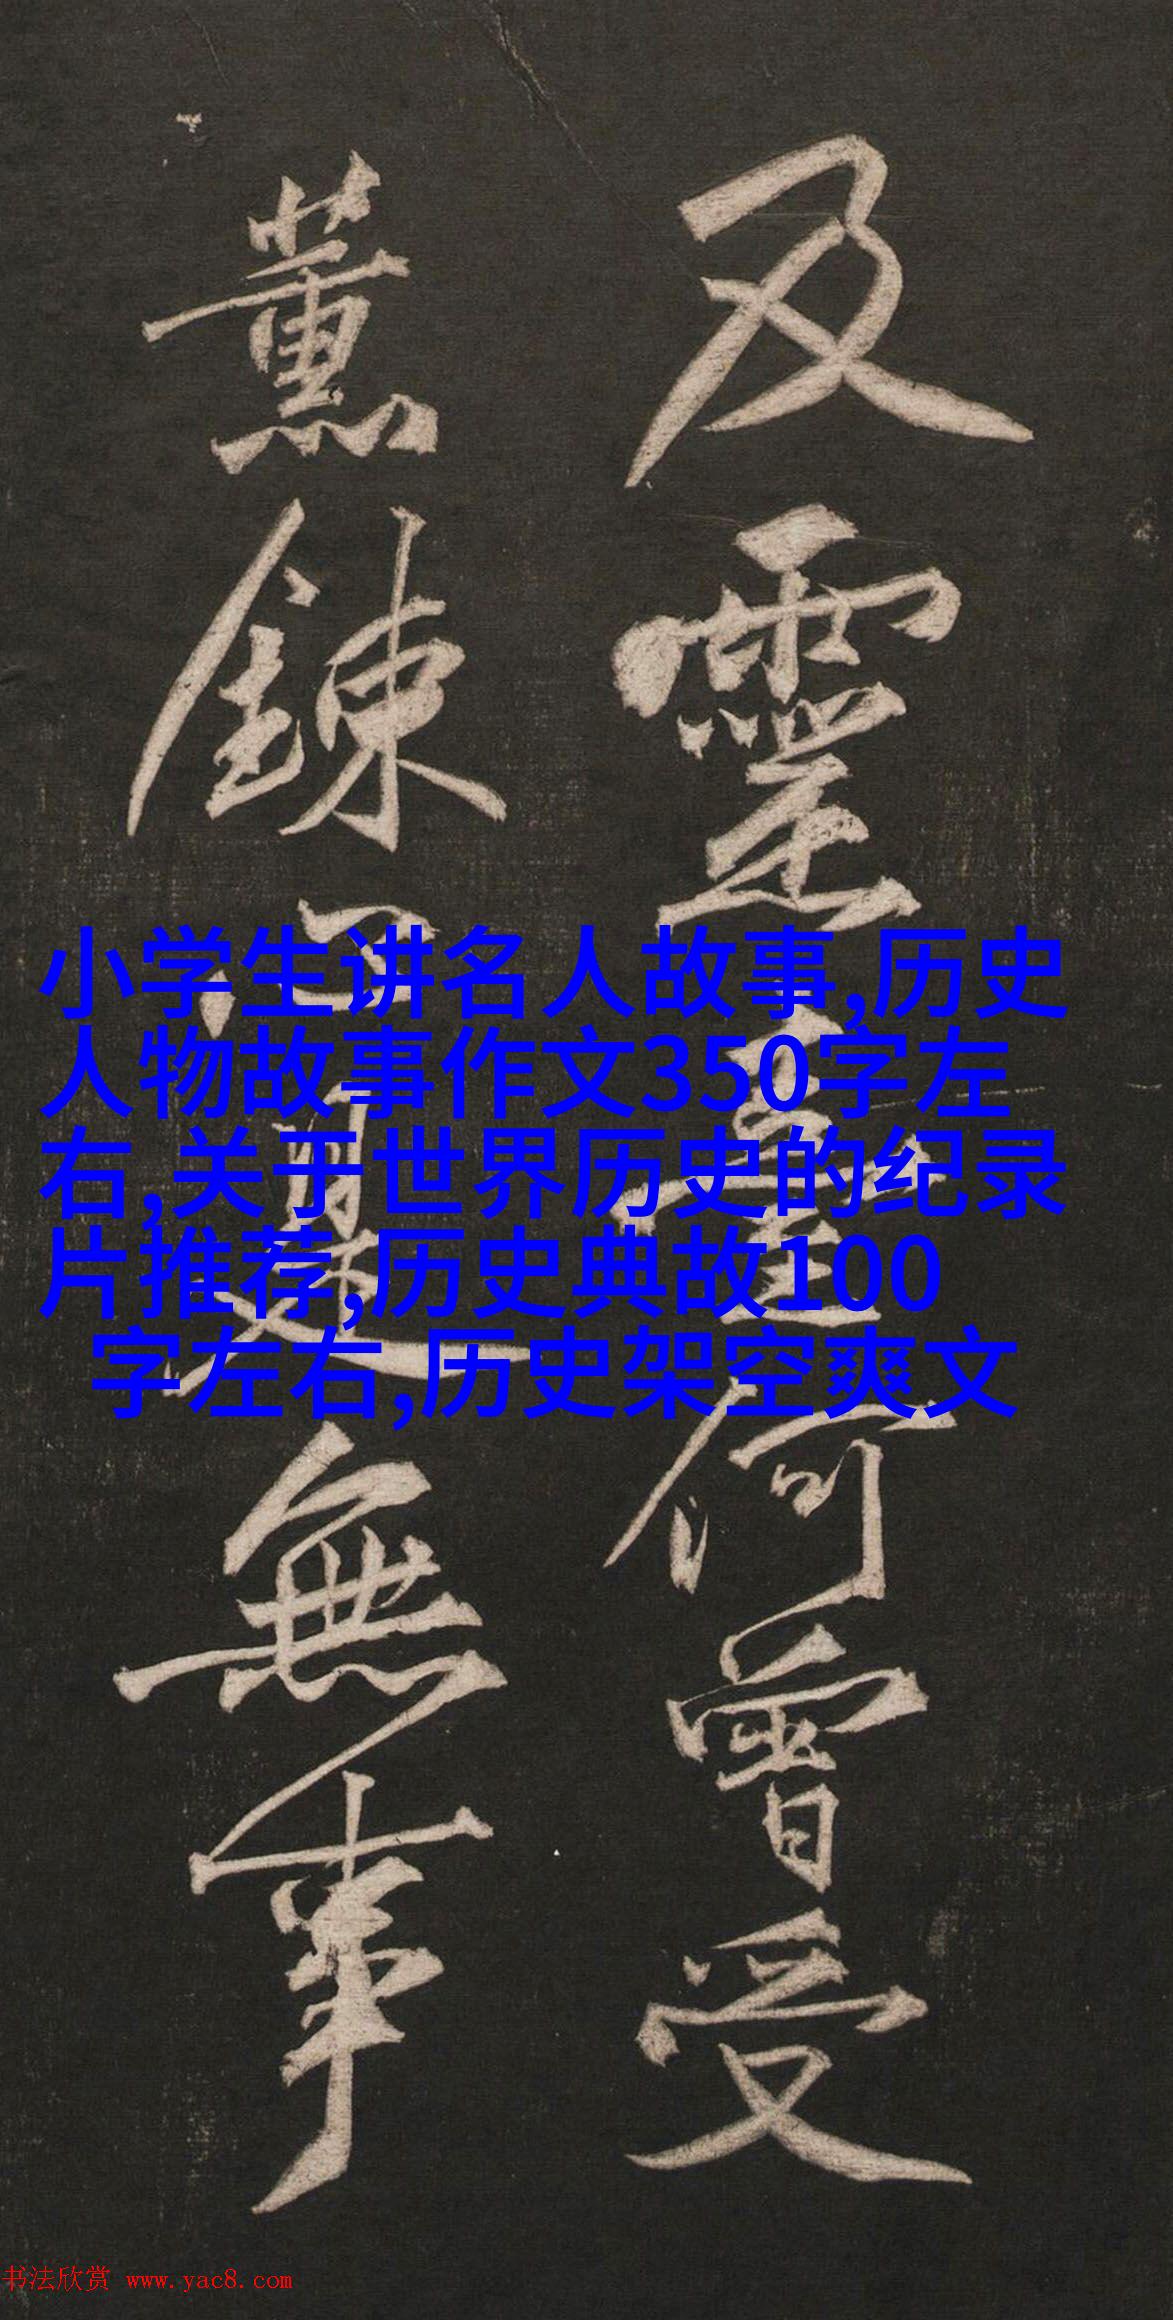 及靈臺何曾受
薰鍊可更無事
小学生讲名人故事,历史
人物故事作文350字左
右,关于世界历史的纪录
片推荐,历史典故100
字左右,历史架空爽文
书法欣赏 www.yac8.com